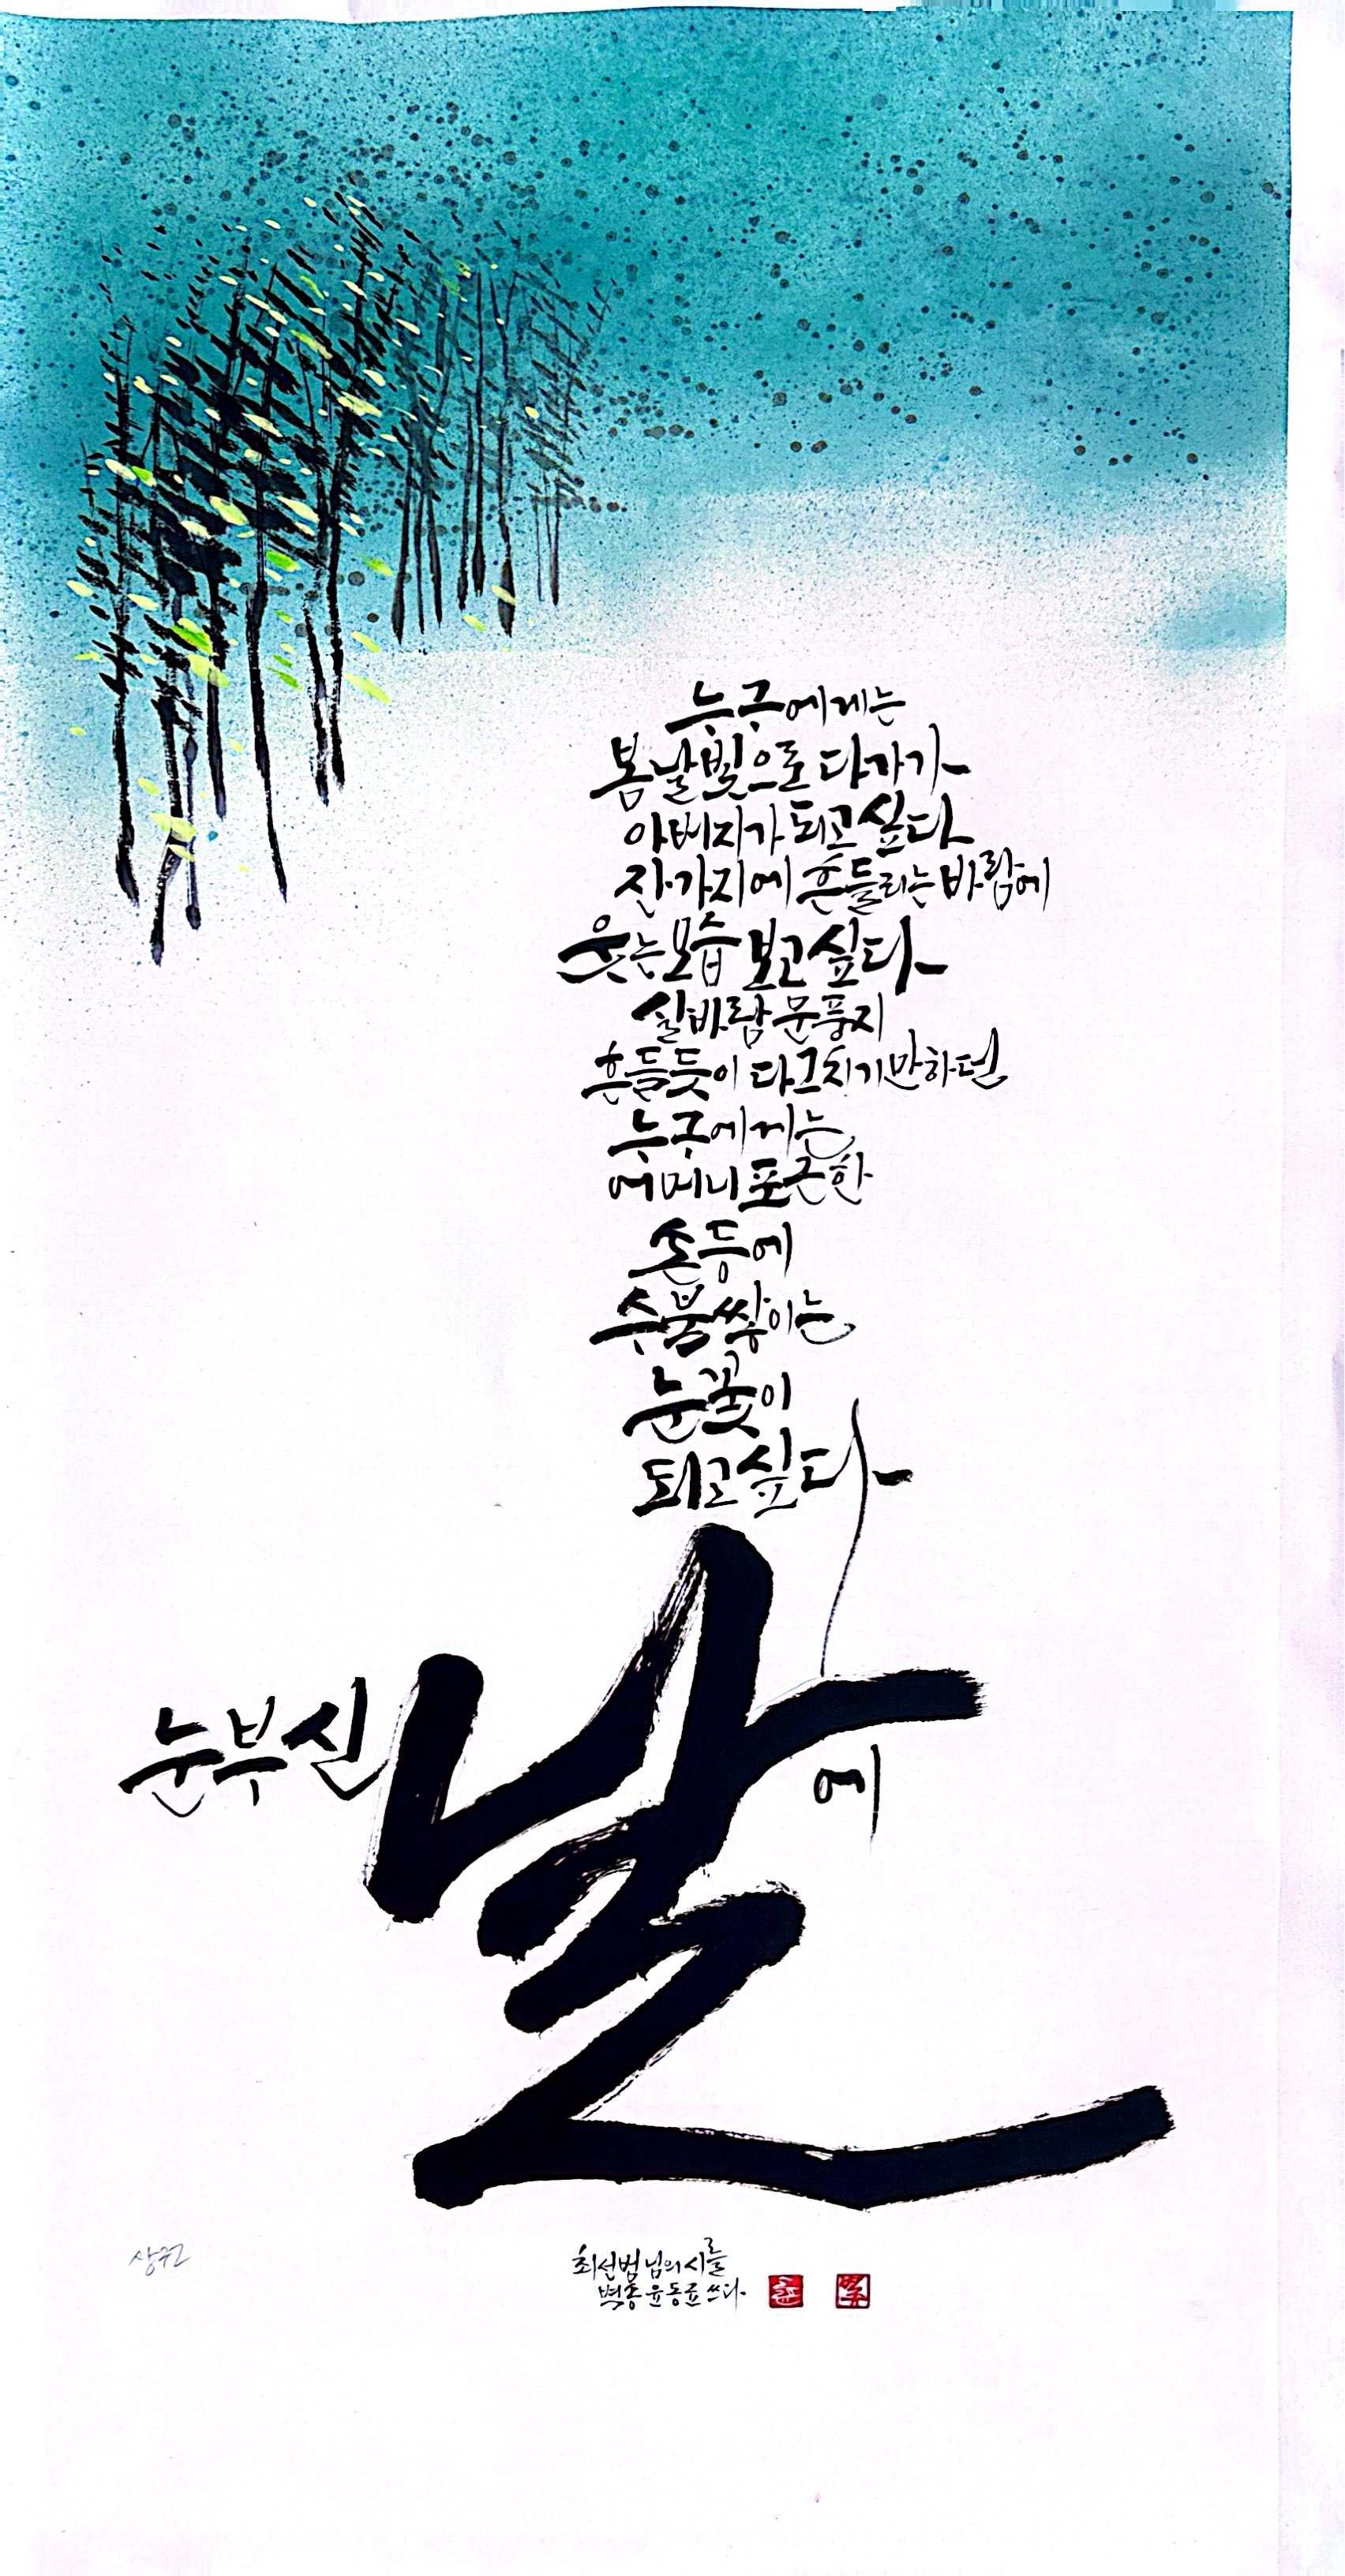 누구에게는
봄날 빛으로 다가가
아버지가 되고싶다
잔가지에 흔들리는 바람에
웃는 모습 보고싶다
실바람 문풍지
흔들듯이 다그치기만하던
누구에게는
어머니 포근한
손등에
수북 쌓이는
눈꽃이
되고싶다
눈부신 날에
최선범님의 시를
벽송 윤동률 쓰다